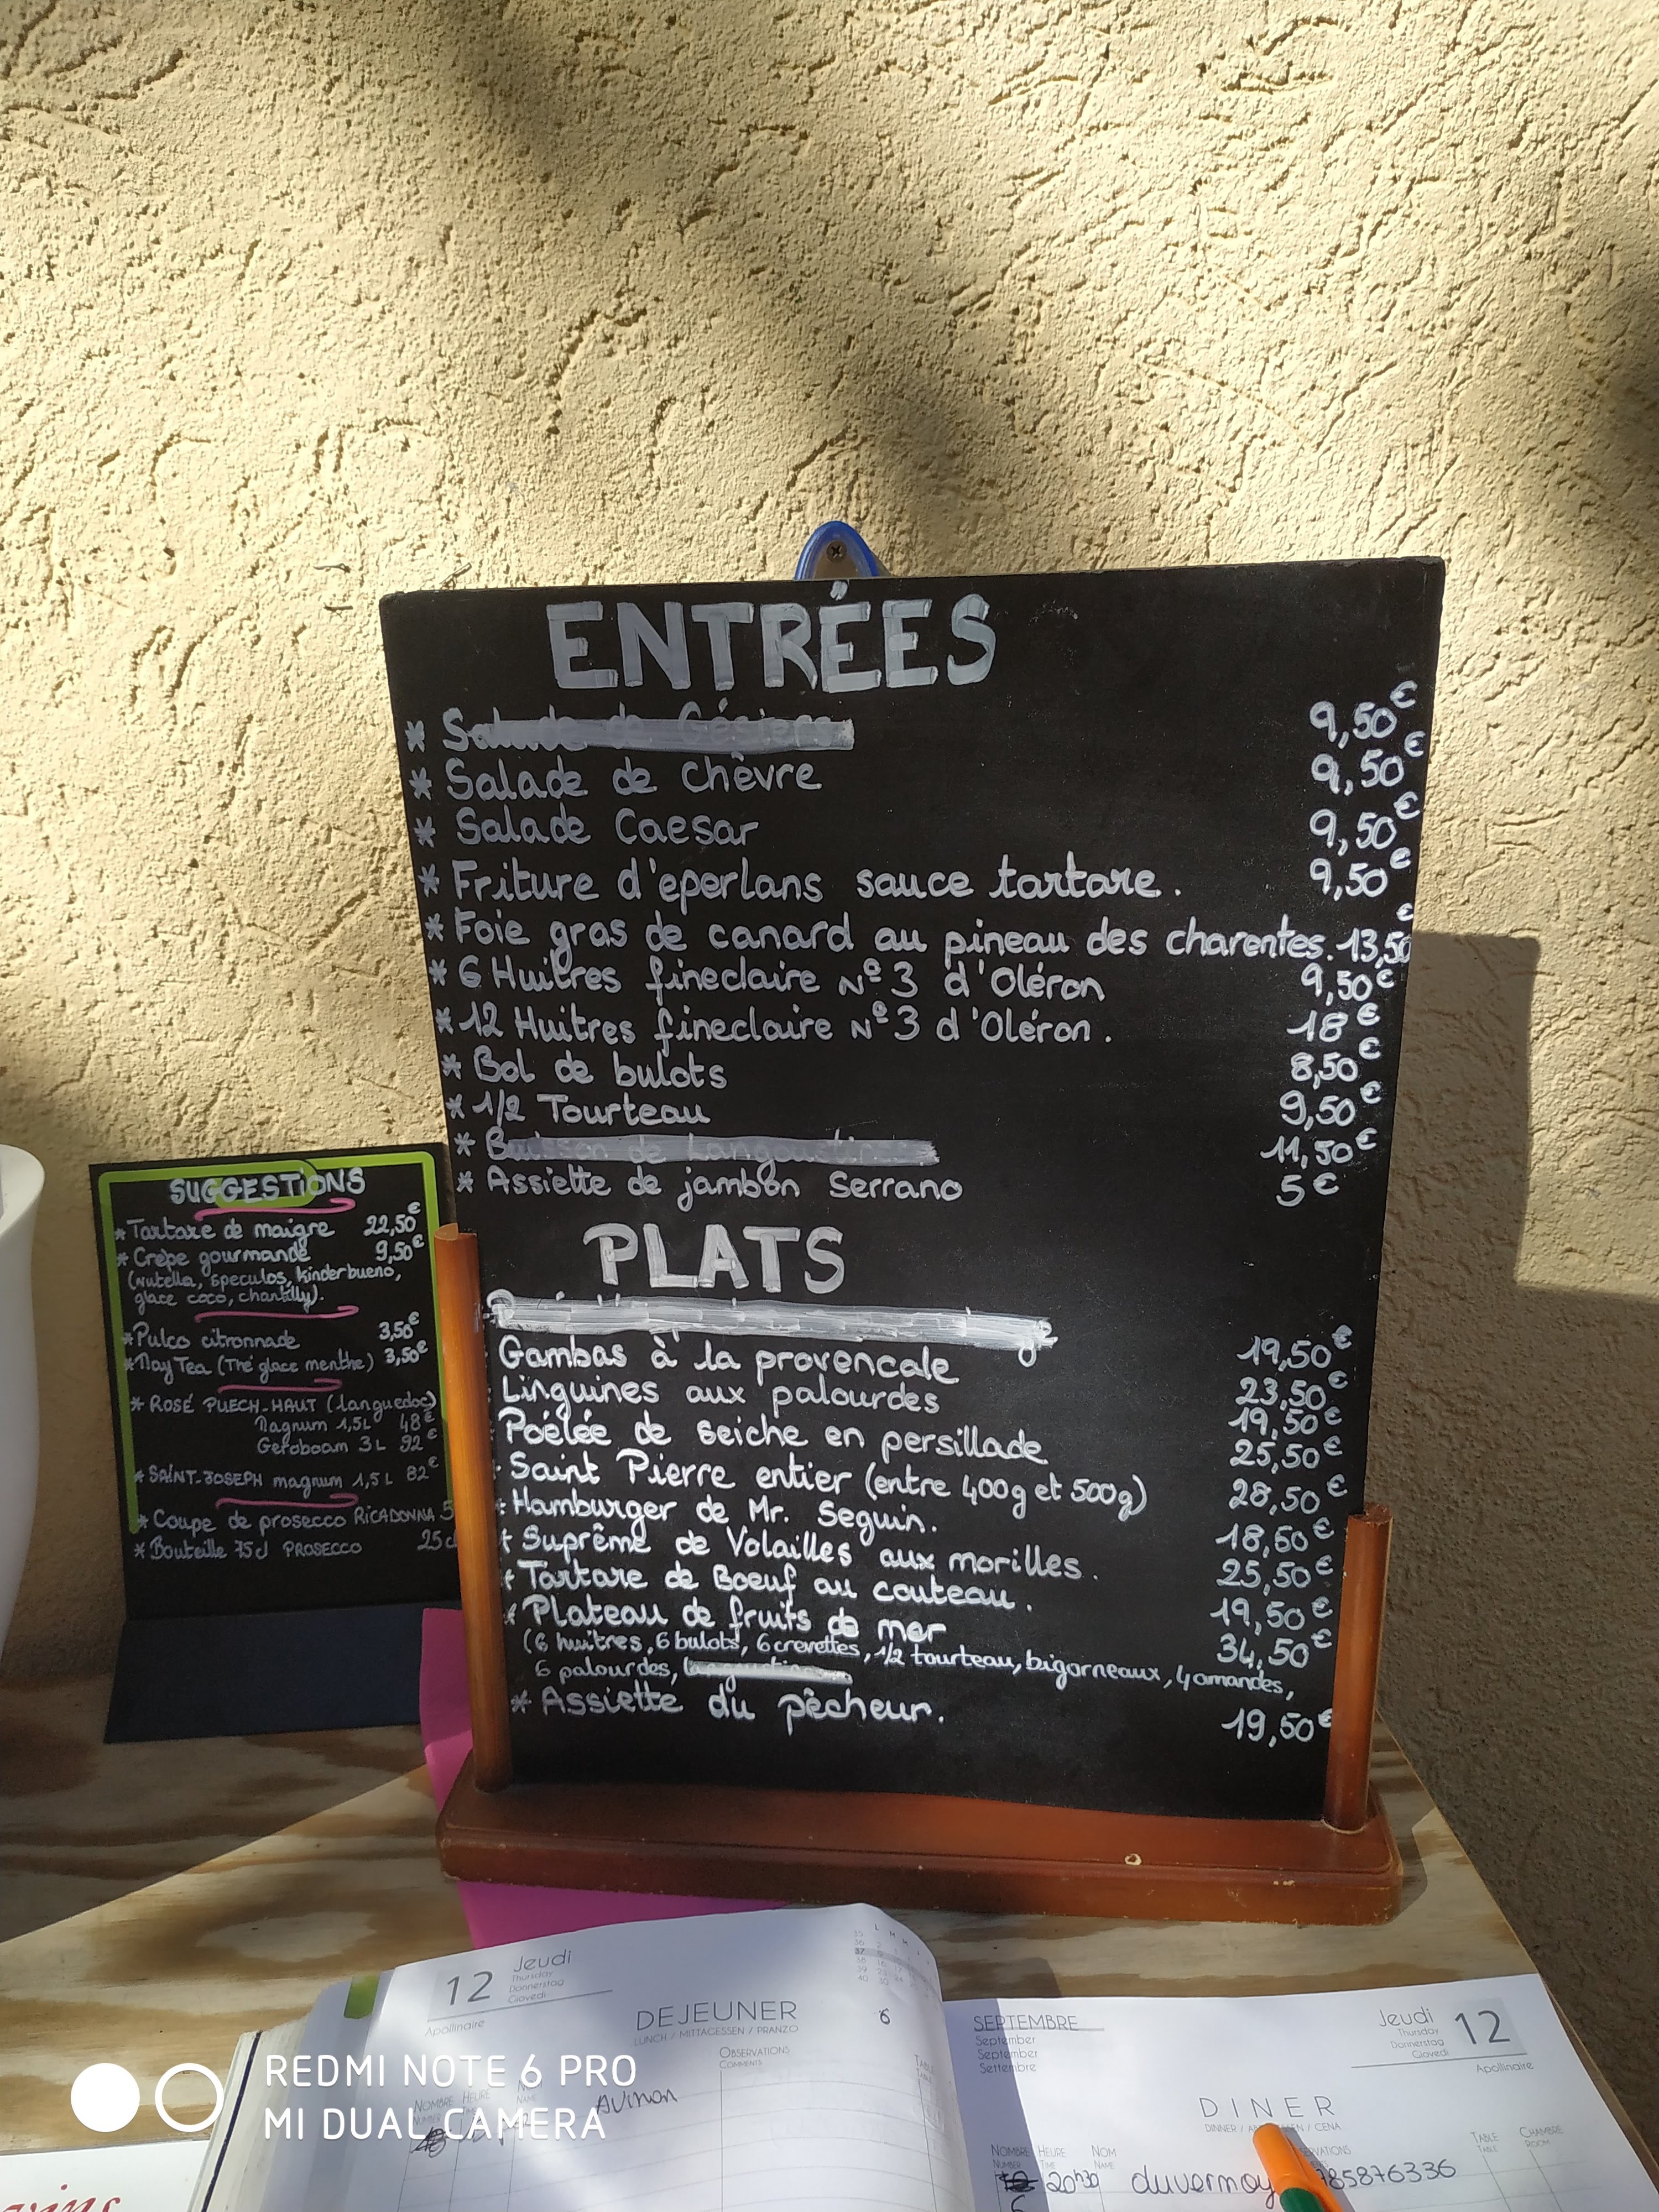 ENTRÉES
* Salade de Gésiers 9,50€
* Salade de Chèvre 9,50€
* Salade Caesar 9,50€
* Friture d'eperlans sauce tartare. 9,50€
* Foie gras de canard au pineau des charentes. 13,50€
* 6 Huitres fineclaire N°3 d'Oléron 9,50€
* 12 Huitres fineclaire N°3 d'Oléron. 18€
* Bol de bulots 8,50€
* 1/2 Tourteau 9,50€
* Buisson de Langoustines 11,50€
* Assiette de jambon Serrano 5€
PLATS
19,50€
Gambas à la provencale 23,50€
Linguines aux palourdes 19,50€
Poêlée de seiche en persillade 25,50€
Saint Pierre entier (entre 400g et 500g) 28,50€
Hamburger de Mr. Seguin. 18,50€
* Suprême de Volailles aux morilles. 25,50€
* Tartare de Boeuf au couteau. 19,50€
* Plateau de fruits de mer 34,50€
(6 huîtres, 6 bulots, 6 crevettes, 1/2 tourteau, bigorneaux, 4 amandes,
6 palourdes,
* Assiette du pêcheur. 19,50€
SUGGESTIONS
* Tartare de maigre 22,50€
* Crèpe gourmande 9,50€
(Nutella, speculos, kinderbueno,
glace coco, chantilly).
* Pulco citronnade 3,50€
* May Tea (Thé glace menthe) 3,50€
* ROSÉ PUECH-HAUT (languedoc)
Magnum 1,5L 48€
Geroboam 3L 92€
* SAINT-JOSEPH magnum 1,5L 82€
* Coupe de prosecco RICADONNA 5
* Bouteille 75cl PROSECCO 25
12 Jeudi
Thursday
Donnerstag
Giovedì
Apollinaire
DEJEUNER
LUNCH / MITTAGESSEN / PRANZO
6
OBSERVATIONS
COMMENTS
NOMBRE HEURE
Avinon
SEPTEMBRE
September
September
Settembre
Jeudi 12
Thursday
Donnerstag
Giovedì
Apollinaire
DINER
DINNER / CENA
NOMBRE HEURE NOM TABLE CHAMBRE
NUMBER TIME NAME TABLE ROOM
20h30 duvernoy 785876336
6
REDMI NOTE 6 PRO
MI DUAL CAMERA